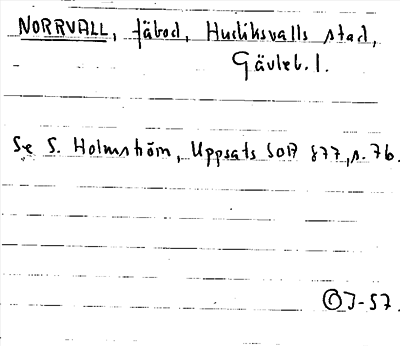 NORRVALL, fäbod, Hudiksvalls stad,
Gävleb. l.
Se S. Holmström, Uppsats SOD 877, s. 76.
OJ-57.